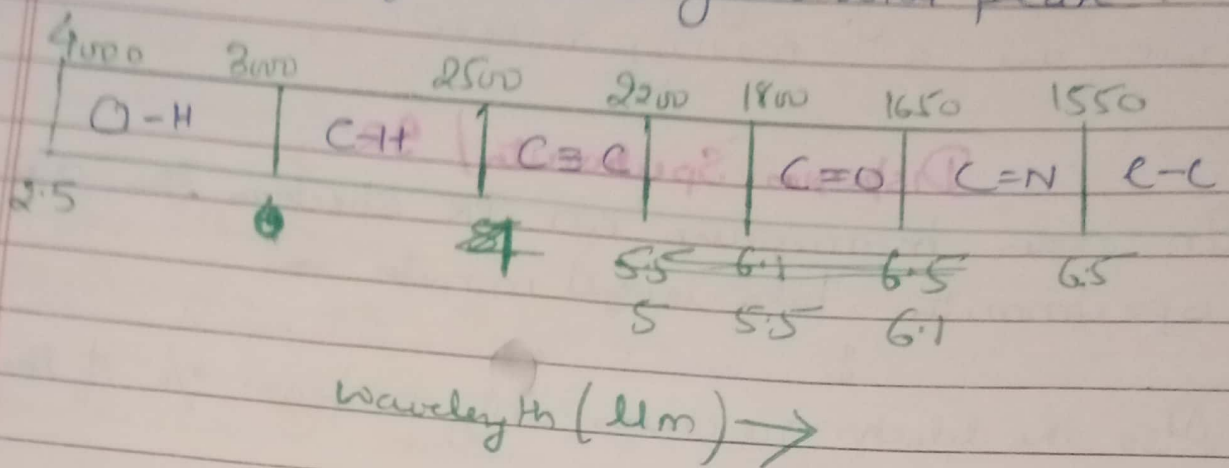 4000 3000 2500 2200 1800 1650 1550
O-H C-H C≡C C=O C=N C-C
2.5 4
5.5 6.1 6.5 6.5
5 5.5 6.1
wavelength (μm) →